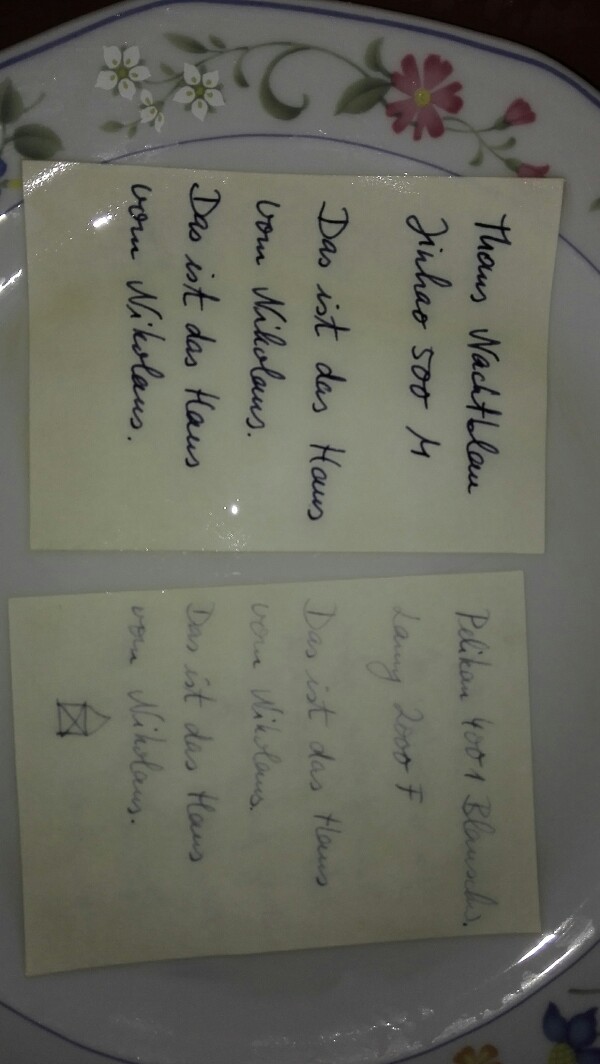 Thans Nachtblau
Jinhao 500 M
Das ist das Haus
vom Nikolaus.
Das ist das Haus
vom Nikolaus.
Pelikan 4001 Blauschw.
Lamy 2000 F
Das ist das Haus
vom Nikolaus.
Das ist das Haus
vom Nikolaus.